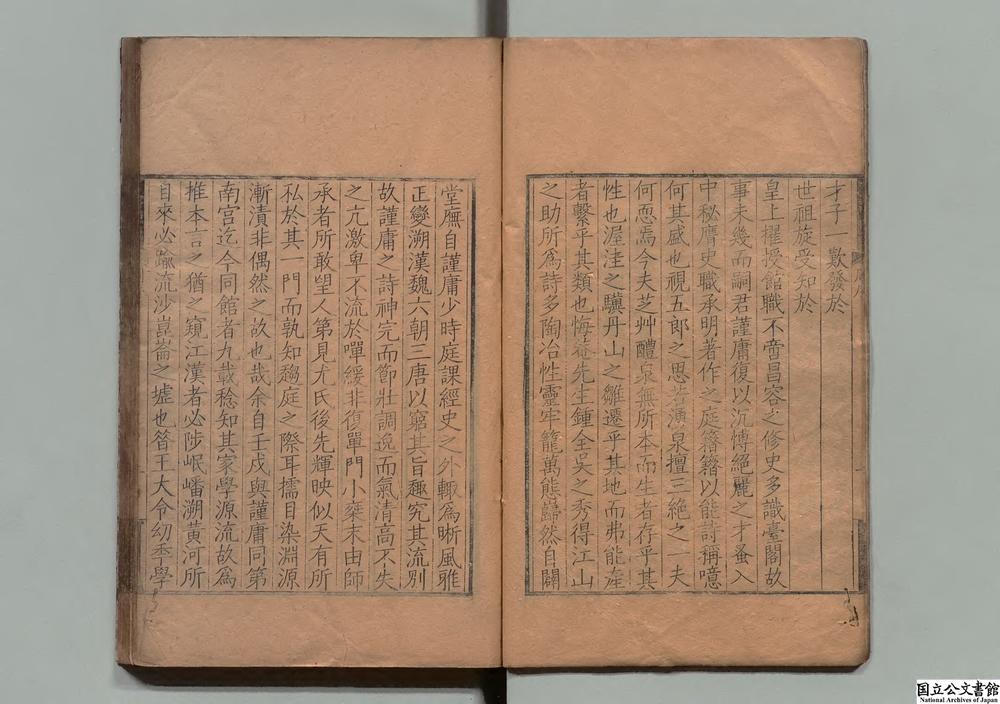 才子一歎發於
世祖旋受知於
皇上擢授館職不啻昌容之修史多識臺閣故
事未幾而嗣君謹庸復以沉博絕麗之才蚤入
中秘膺史職承明著作之庭籍籍以能詩稱噫
何其盛也視五郎之思若湧泉擅三絕之一夫
何恧焉今夫芝艸醴泉無所本而生者存乎其
性也渥洼之驥丹山之雛遷乎其地而弗能產
者繫乎其類也悔菴先生鍾全吳之秀得江山
之助所為詩多陶冶性靈牢籠萬態巋然自闢
堂廡自謹庸少時庭課經史之外輒為晰風雅
正變溯漢魏六朝三唐以窮其旨趣究其流別
故謹庸之詩神完而節壯調逸而氣清高不失
之亢激卑不流於嘽緩非復單門小桀末由師
承者所敢望人第見尤氏後先輝映似天有所
私於其一門而孰知趨庭之際耳擩目染淵源
漸漬非偶然之故也哉余自壬戌與謹庸同第
南宮迄今同館者九載稔知其家學源流故為
推本言之猶之窺江漢者必陟岷嶓溯黃河所
自來必踰流沙崑崙之墟也昔王大令幼秀學
国立公文書館
National Archives of Japan